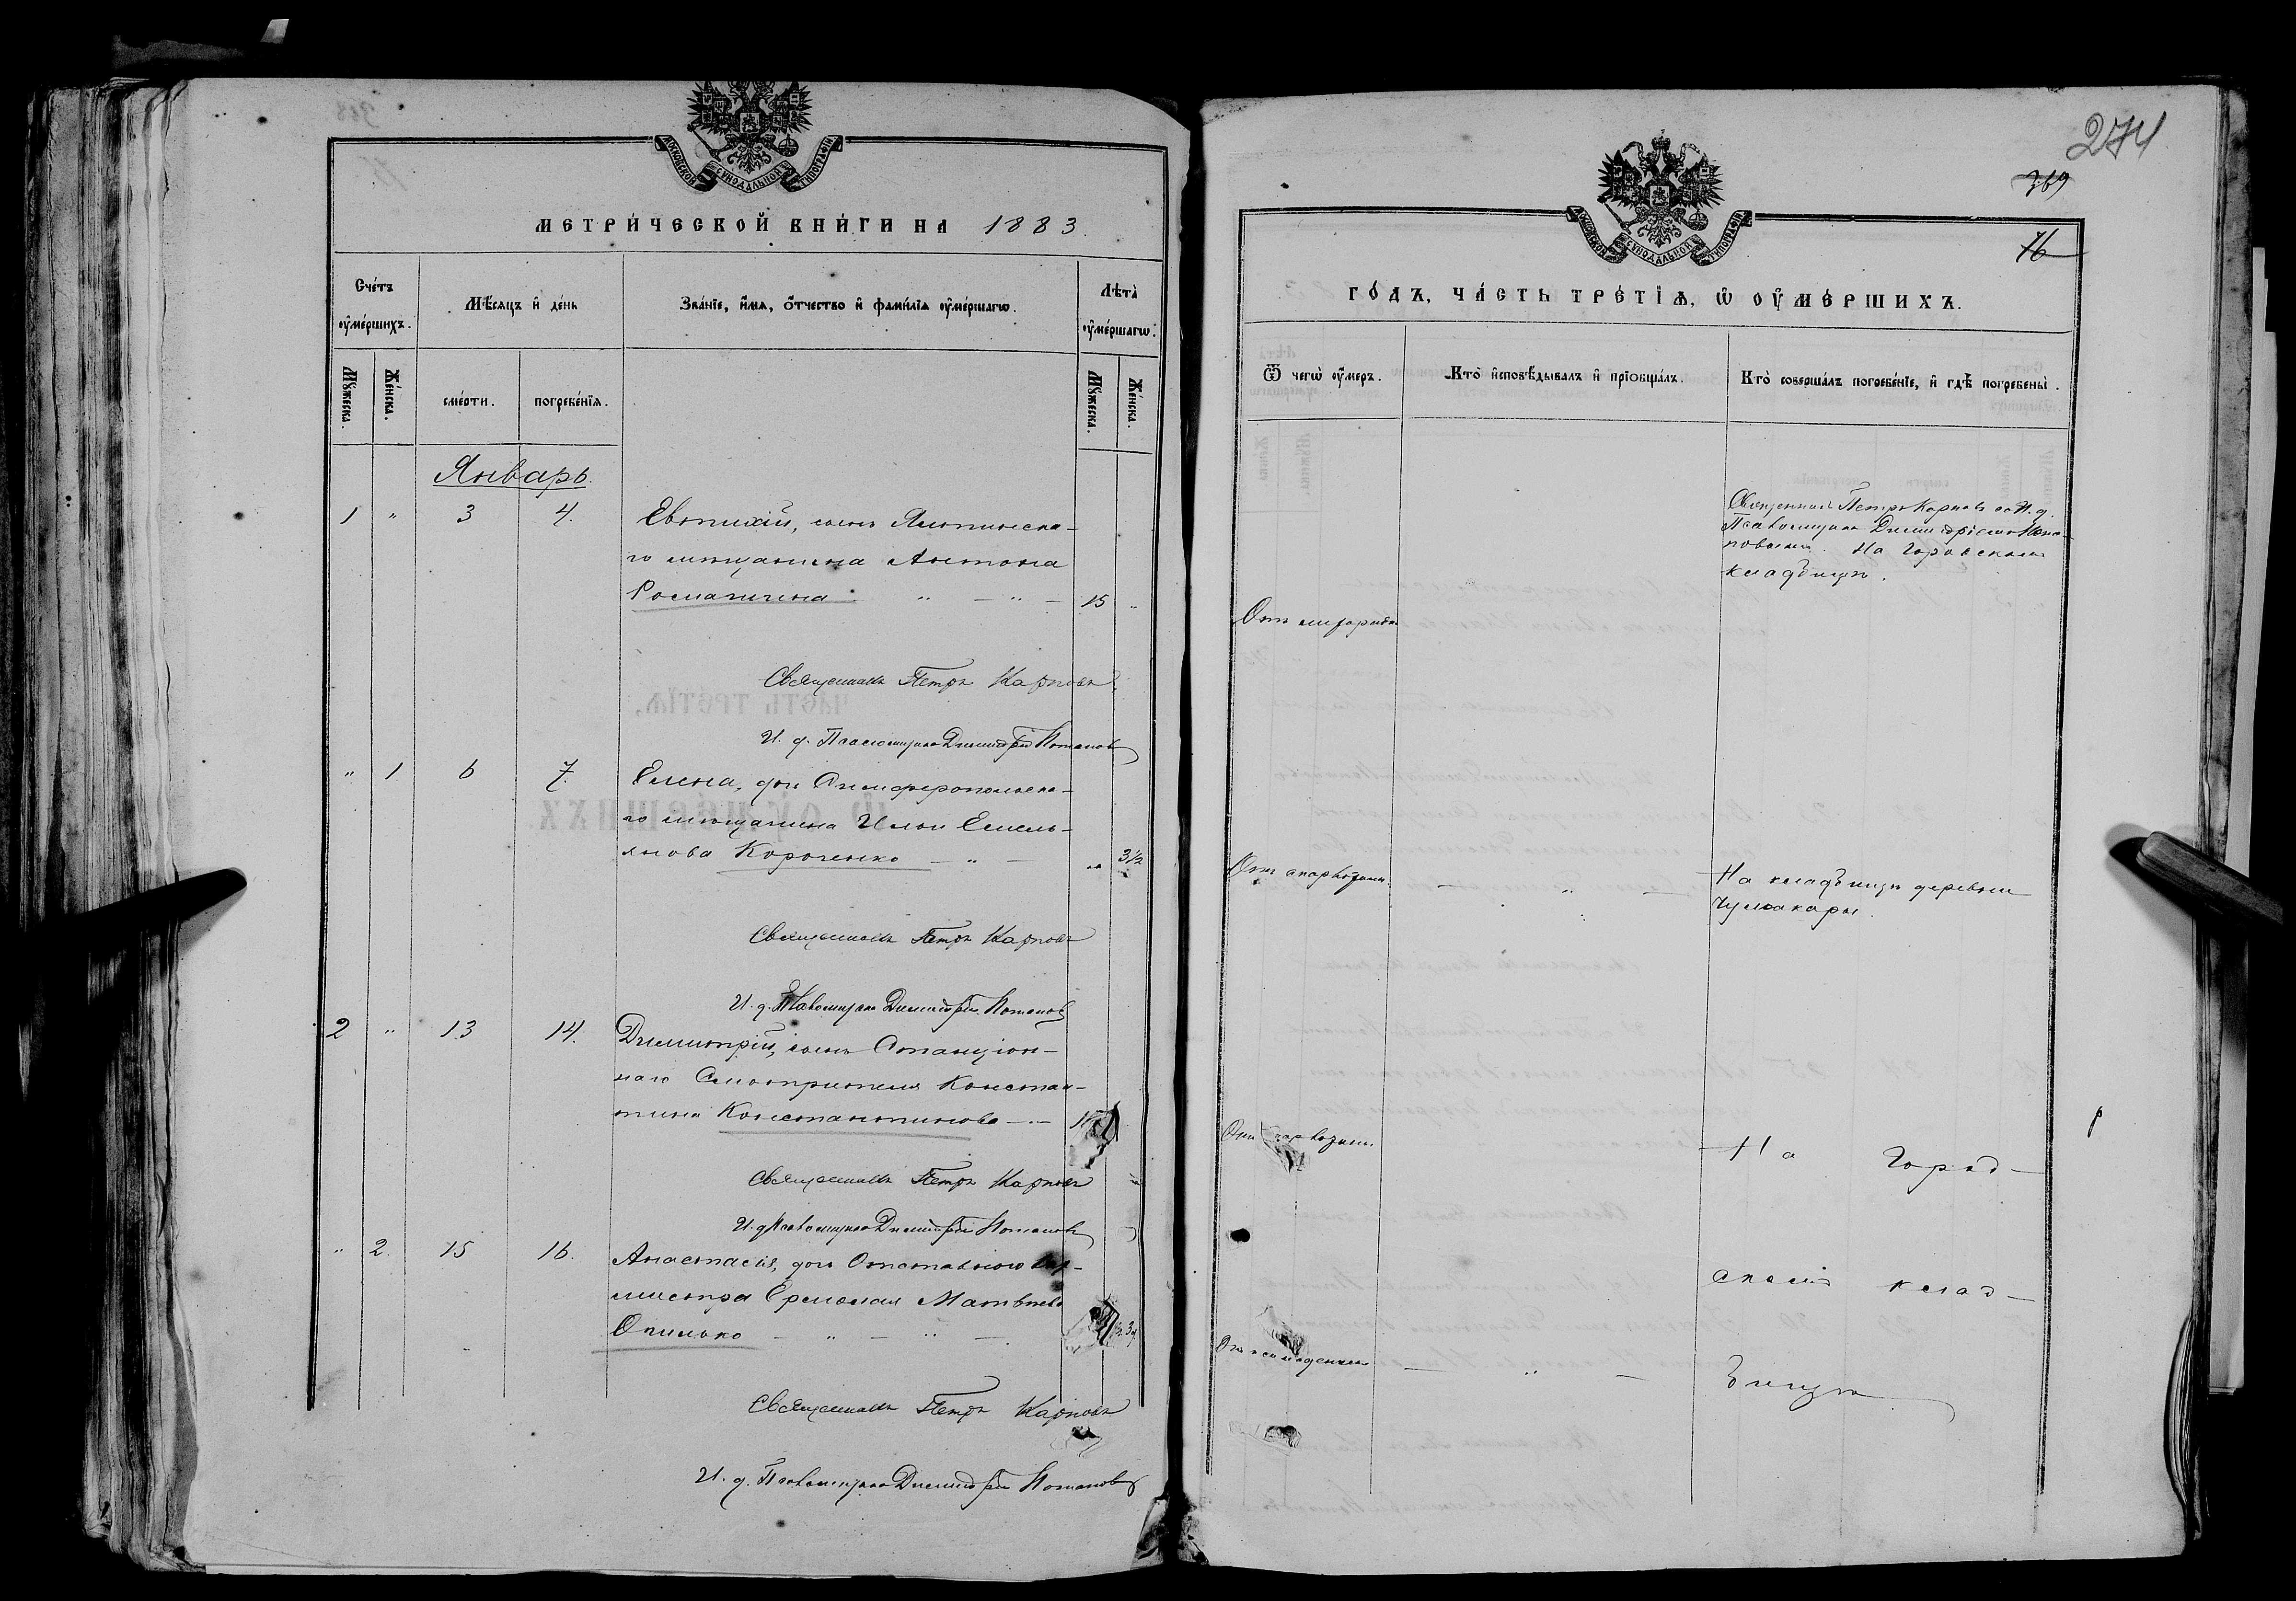 МОСКОВСКОЙ СѴНОДАЛЬНОЙ ТИПОГРАФІИ
МЕТРИ́ЧЕСКОЙ КНИ́ГИ НА 1883.
Сче́тъ ᲂу҆ме́ршихъ.
Мѣ́сяцъ и҆ де́нь
Зва́нїе, и҆́мѧ, ѻ҆́тчество и҆ фами́лїѧ ᲂу҆ме́ршагѡ.
Лѣта̀ ᲂу҆ме́ршагѡ.
Мꙋ́жеска.
Же́нска.
сме́рти.
погребе́нїѧ.
Мꙋ́жеска.
Же́нска.
Январь.
1 " 3 4. Евтихій, сынъ Ялтинска-
го мѣщанина Антона
" — " — 15 "
Священникъ Петръ Карповъ.
И. д. Псаломщика Димитрій Потаповъ
" 1 6 7. Елена, дочь Симферопольска-
го мѣщанина Ильи Емель-
янова Короченко — " — " 3½
Священникъ Петръ Карповъ
И. д. Псаломщика Димитрій Потаповъ
2 " 13 14. Димитрій, сынъ Станціон-
наго Смотрителя Констан-
тина Константинова —
Священникъ Петръ Карповъ
И. д. Псаломщика Димитрій Потаповъ
" 2. 15 16. Анастасія, дочь Отставного
Ермолая Матвѣева
— " — " —
Священникъ Петръ Карповъ
И. д. Псаломщика Димитрій Потаповъ
274
369
76
МОСКОВСКОЙ СѴНОДАЛЬНОЙ ТИПОГРАФІИ
ГО́ДЪ, ЧА́СТЬ ТРЕ́ТЇѦ, Ѡ҆ ОУ҆МЕ́РШИХЪ.
Ѿ чегѡ̀ ᲂу҆́меръ.
Кто̀ и҆сповѣ́дывалъ и҆ прїѡбща́лъ.
Кто̀ соверша́лъ погребе́нїе, и҆ гдѣ̀ погребены̀.
Священникъ Петръ Карповъ съ И. д.
Псаломщика Димитріемъ Пота-
повымъ. На Городскомъ
кладбищѣ.
Отъ
Отъ скарлатины. — " — На кладбищѣ деревни
Чумакары.
Отъ скарлатины
На Город-
скомъ клад-
бищѣ
Отъ — " —